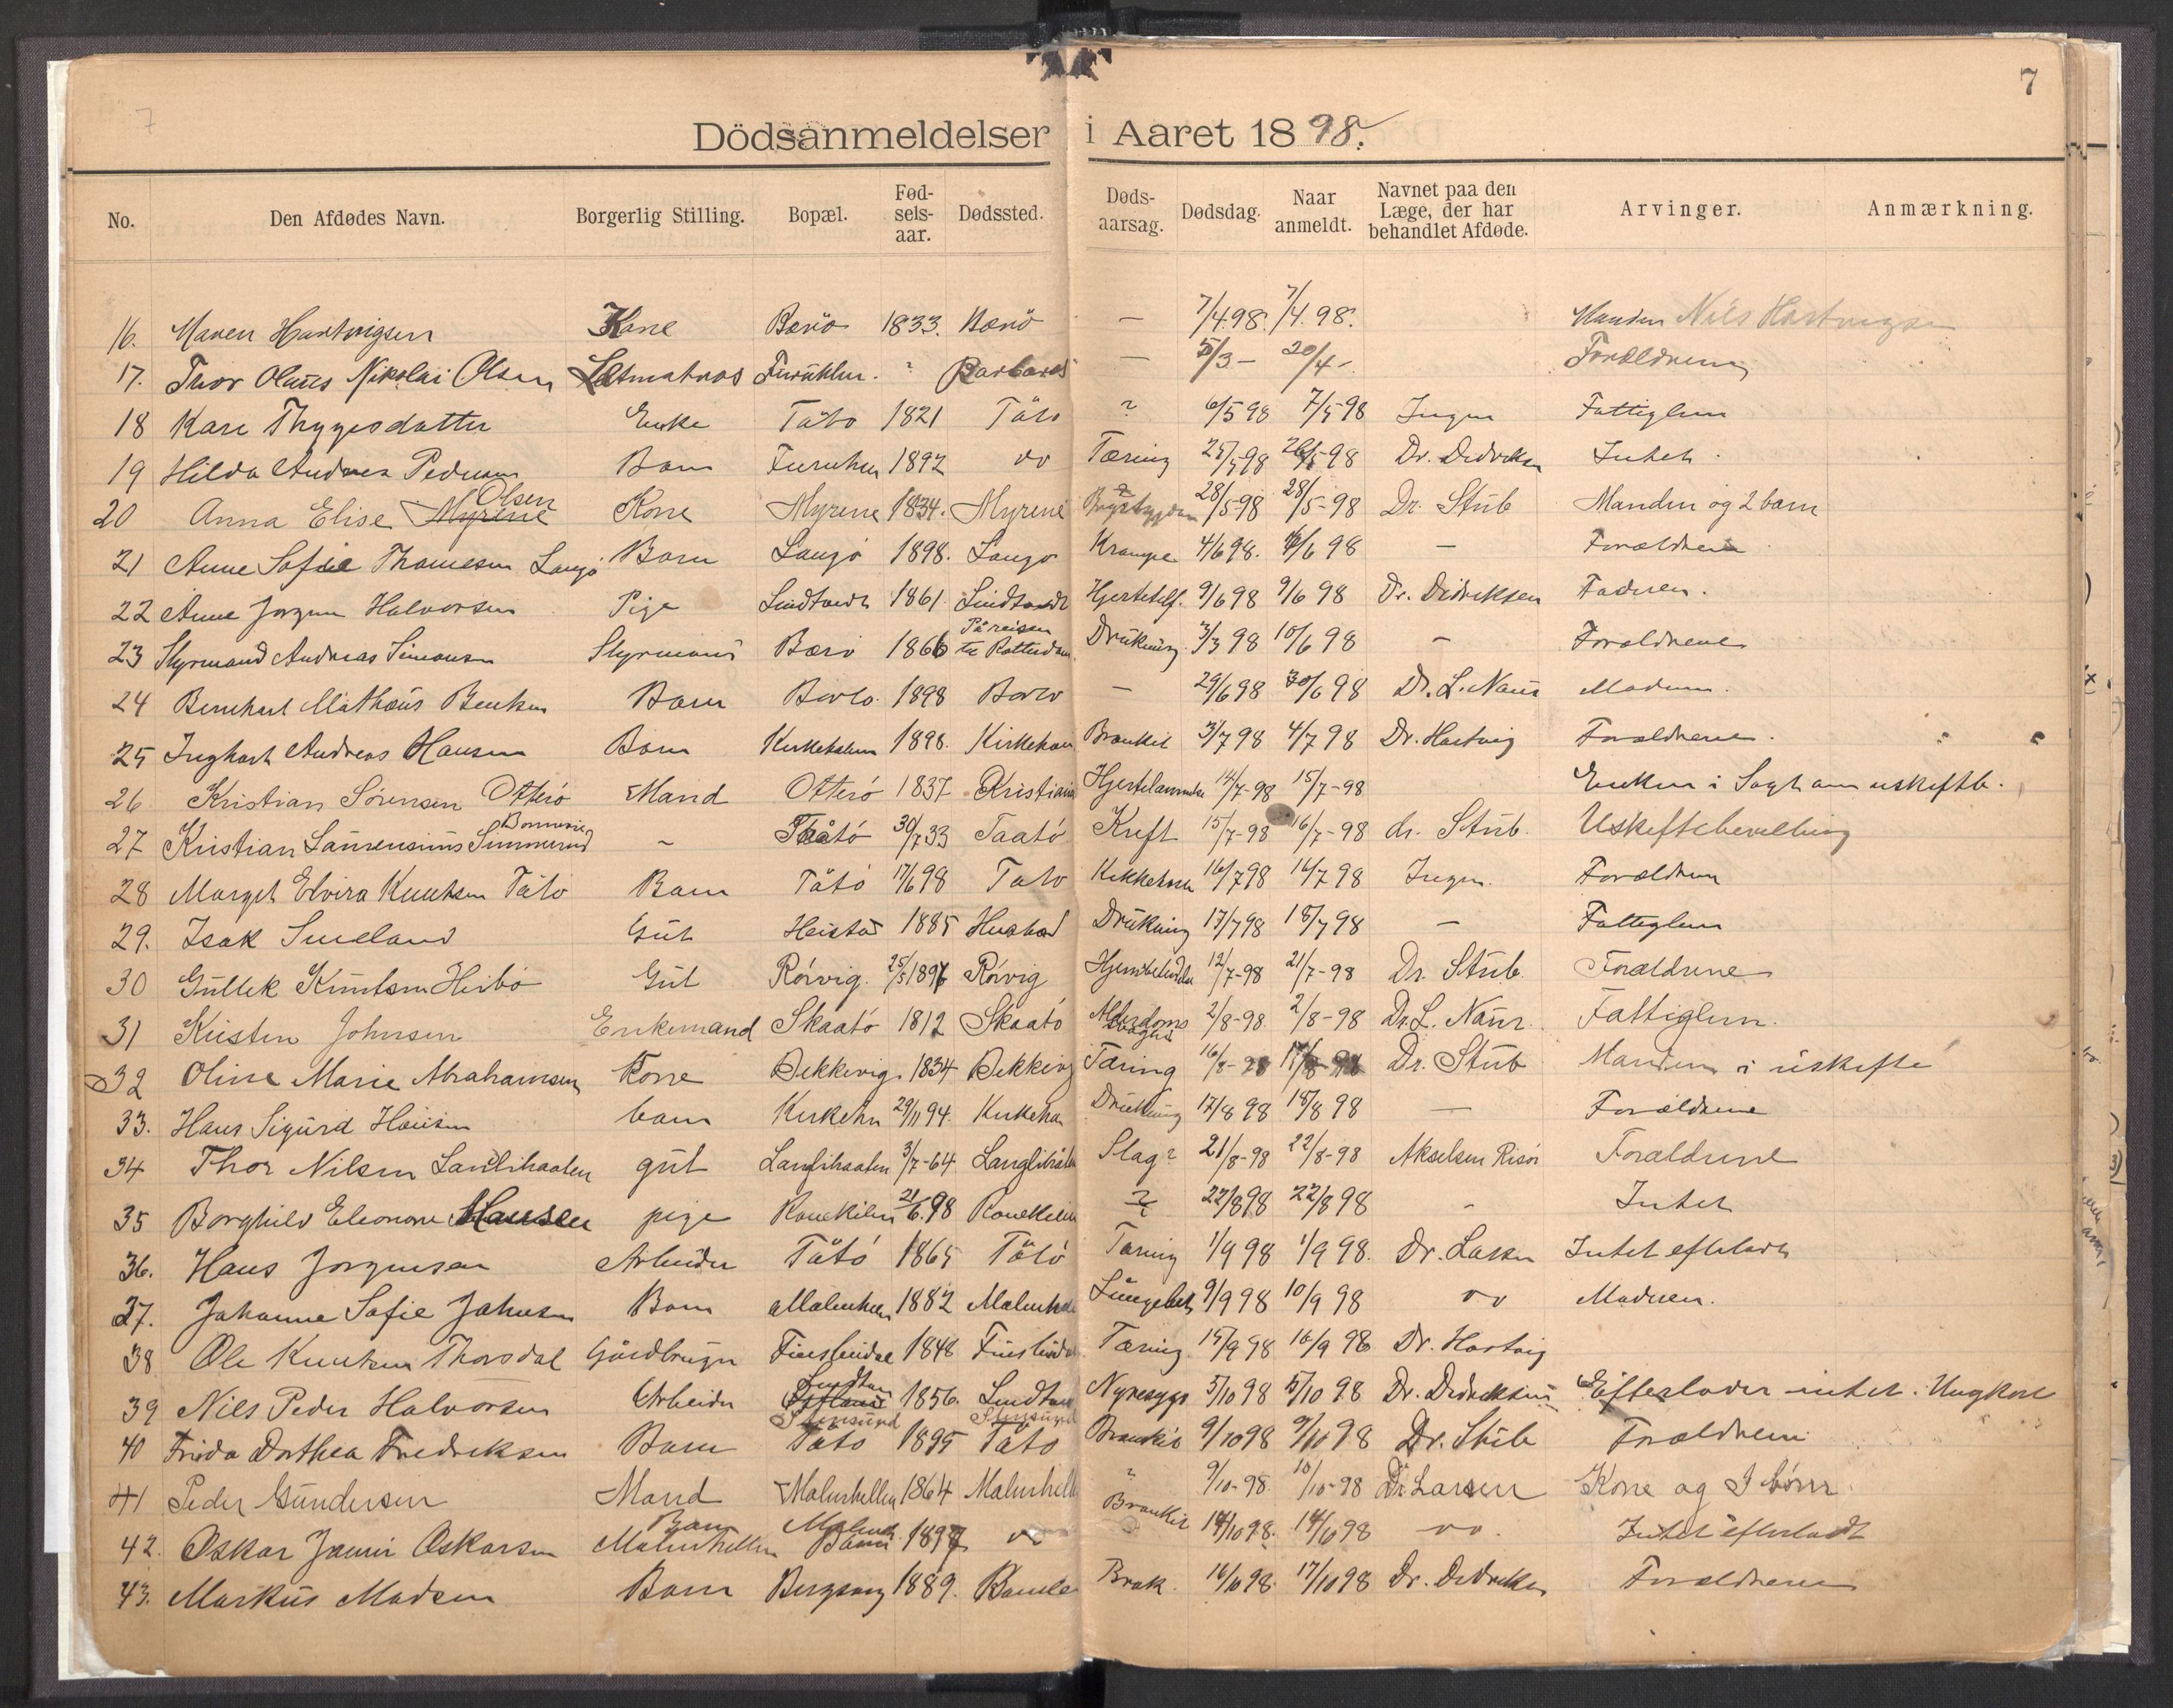 7
7
Dödsanmeldelser i Aaret 1898.
No. Den Afdødes Navn. Borgerlig Stilling. Bopæl. Fød-sels-aar. Dødssted. Døds-aarsag. Dødsdag. Naar anmeldt. Navnet paa den Læge, der har behandlet Afdøde. Arvinger. Anmærkning.
16. Maren Hartvigsen Kone Barö 1833. Barö — 7/4 98. 7/4. 98. Manden Nils Hartvigsen
17. Thor Olaus Nikolai Olsen Letmatros ? Barbados — 5/3 – 20/4 – Forældrene
18 Kari Thygesdatter Enke Tåtö 1821 Tåtö ? 6/5 98 7/5 98 Ingen Fattiglem
19 Hilda Andrea Pedersen Barn 1892 do Tæring 25/5 98 26/5 98 Dr. Didriksen Intet.
20 Anna Elise Myrene Olsen Kone Myrene 1834. Myrene 28/5-98 28/5-98 Dr. Stub Manden og 2 barn
21 Anne Sofie Thomesen Langö Barn Langö 1898. Langö Krampe 4/6 98. 6/6 98 — Forældrene
22 Anne Jorgine Halvorsen Pige Lindtvedt 1861 Lindtvedt Hjertelf. 9/6 98 9/6 98 Dr. Didriksen Faderen.
23 Styrmand Andreas Simonsen Styrmand Barö 1866 På reisen til Rotterdam Drukning 3/3 98 10/6 98 – Forældrene
24 Bernhart Mathæus Bentsen Barn 1898 — 29/6 98 30/6 98 Dr. L. Naur Moderen.
25 Inghart Andreas Hansen Barn Kirkehavn 1898. Kirkehavn Bronkit 3/7 98 4/7 98 Dr. Hartvig Forældrene.
26 Kristian Sörensen Otterö Mand Otterö 1837 Kristiania 14/7-98 15/7-98 Enken i Sögt om uskiftb.
27 Kristian Laurensius – Taatö 30/7 33 Taatö Kreft 15/7-98 16/7-98 dr. Stub. Uskiftebevilling
28 Margit Elvira Knutsen Tåtö Barn Tåtö 17/6 98 Tåtö Kikkehoste 16/7 98 16/7 98 Ingen. Forældrene
29. Isak Smeland Gut Heistad 1885 Drukning 17/7 98 18/7 98 — Fattiglem
30 Gullek Knutsen Heibö Gut Rörvig. 25/5 1896 Rörvig 12/7-98 21/7-98 Dr. Stub Forældrene
31 Kristen Johnsen Enkemand Skaatö 1812 Skaatö Alderdomssvaghed 2/8-98 2/8-98 Dr. L. Naur. Fattiglem.
32 Oline Marie Abrahamsen Kone Bekkevig 1834 Bekkevig Tæring 16/8-98 17/8-98 Dr. Stub Manden i uskifte
33. Hans Sigurd Hansen barn Kirkehn 29/11 94. Kirkehn Drukning 17/8 98 18/8 98 — Forældrene
34 Thor Nilsen gut 3/7-64 Slag? 21/8-98 22/8-98 Akselsen Risör Forældrene
35 Borghild Eleonore Hansen pige 21/6 98 ? 22/8 98 22/8 98 – Intet
36. Hans Jorgensen Arbeider Tåtö 1865 Tåtö Tæring 1/9 98 1/9 98. Dr. Larsen Intet efterladt
37. Johanne Sofie Johnsen Barn Malmhn 1882 Malmh 9/9 98 10/9 98 do Moderen.
38 Ole Knutsen Thorsdal Gårdbruger 1848 Tæring 15/9 98 16/9 98 Dr. Hartvig
39 Nils Peder Halvorsen Arbeider Lindtvn 1856. Lindtv Nyresyge 5/10 98 5/10 98 Dr. Didriksen Efterlader intet. Ungkarl
40 Frida Dorthea Fredriksen Barn Stensund Tåtö 1895 Stensund Tåtö Bronkit 9/10 98 9/10 98 Dr. Stub Forældrene
41 Peder Gundersen Mand Malmhellen 1864 Malmhelln ? 9/10-98 10/10-98 Dr. Larsen Kone og 3 börn.
42. Oskar Oskarsen Barn Malmhellen 1897 do Bronkit 14/10 98. 14/10 98 do. Intet efterladt
43. Markus Madsen Barn 1889. Bamle 16/10 98 17/10 98 Dr. Didriksen Forældrene